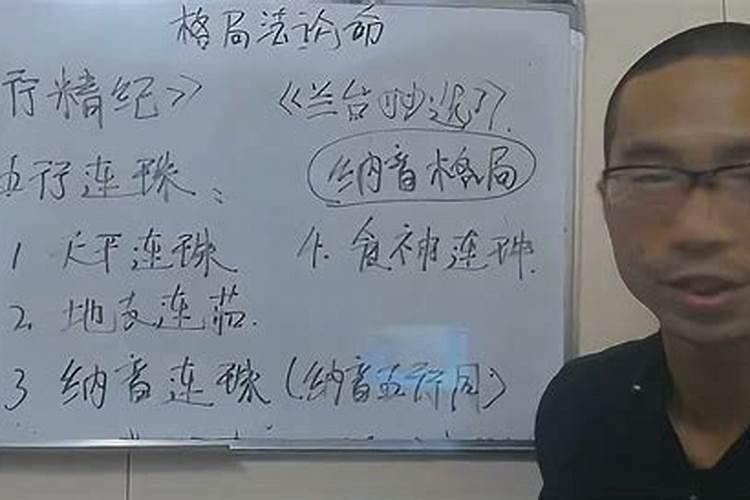 格局法论命
行精纪》 《兰台妙选》
五行连珠： 纳音格局
1 天干连珠 4. 食神连珠
2. 地支连茹.
3 纳音连珠(纳音五行同)